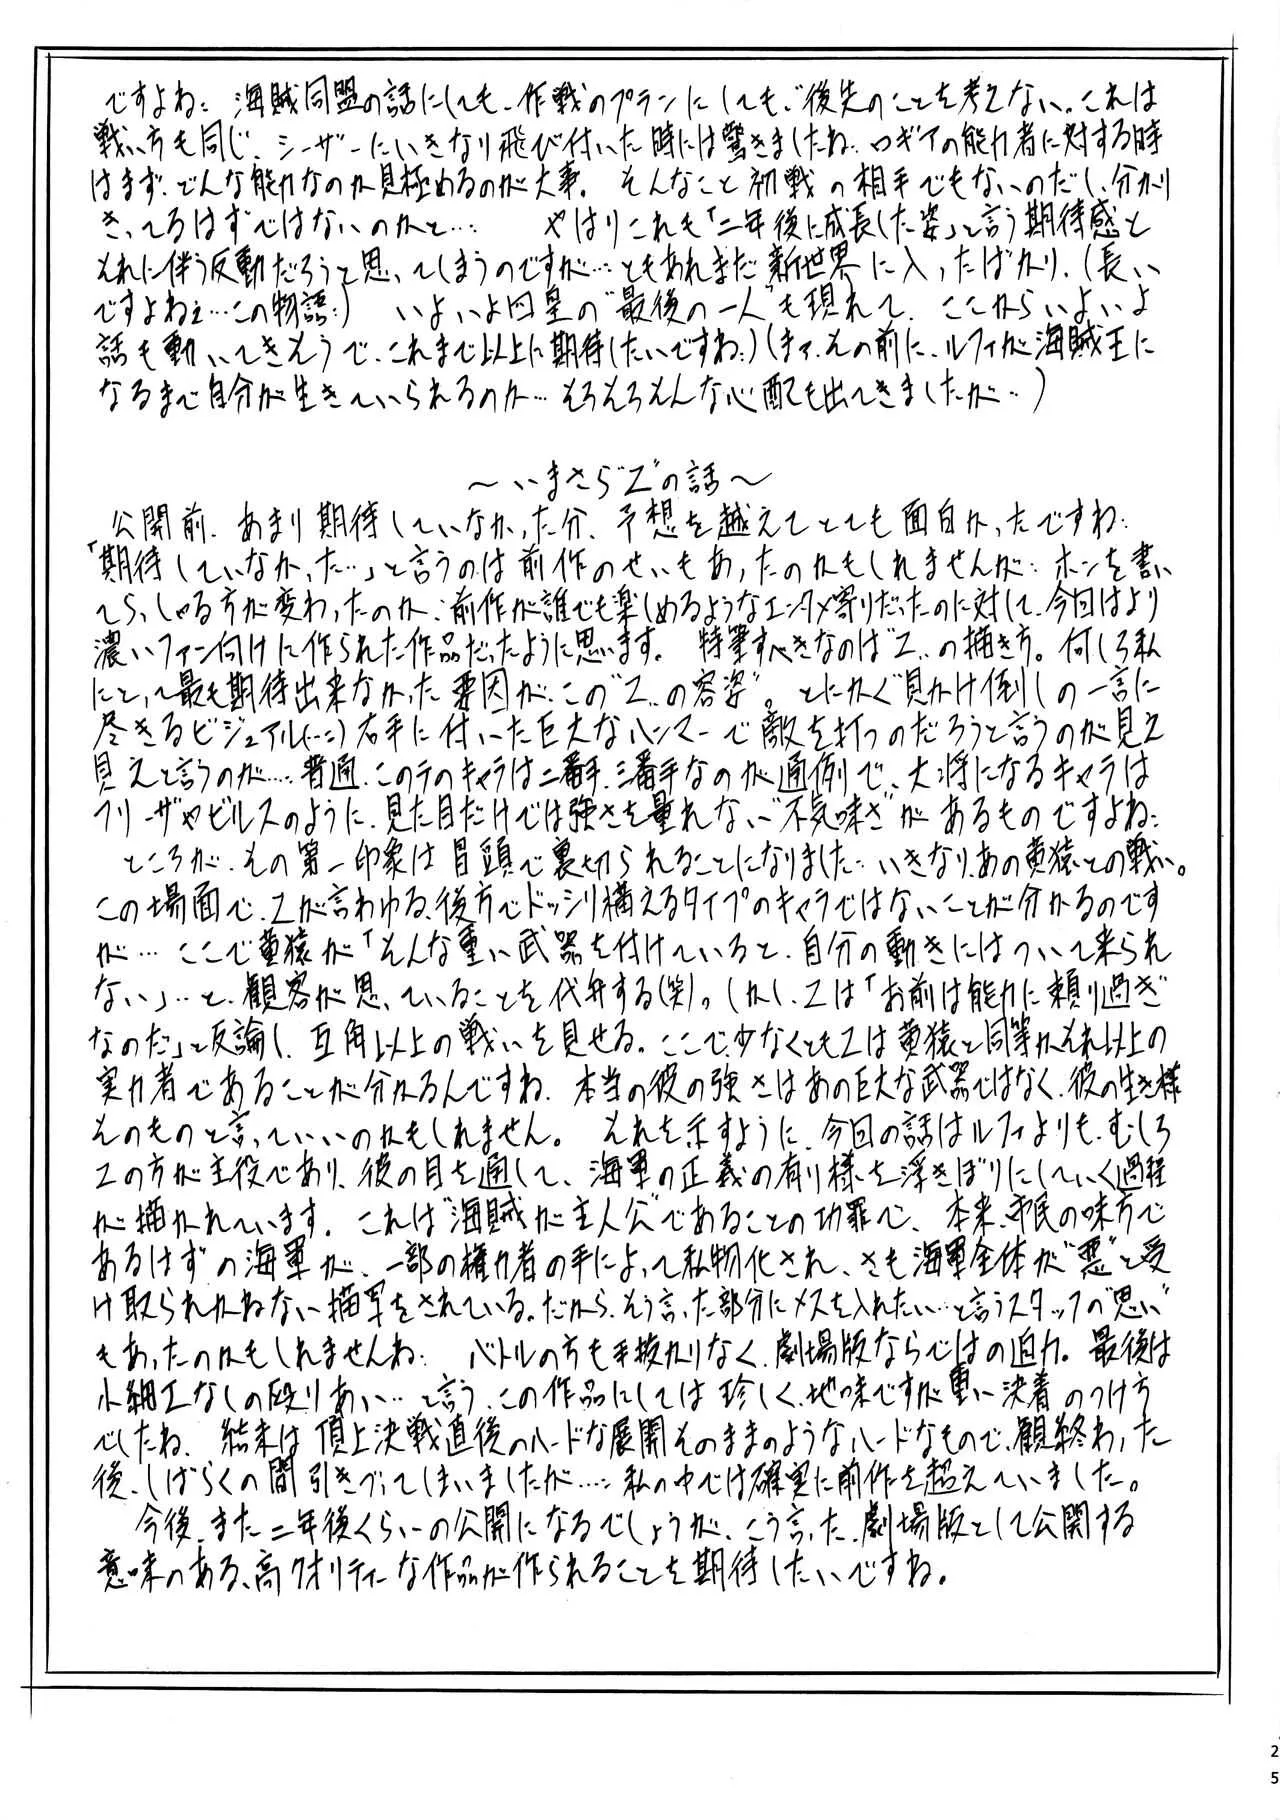 ですよね… 海賊同盟の話にしても、作戦のプランにしても、後先のことを考えない。これは
戦い方も同じ、シーザーにいきなり飛び付いた時には驚きましたね… ロギアの能力者に対する時
はまず、どんな能力なのか見極めるのが大事。 そんなこと初戦の相手でもないのだし、分かり
きってるはずではないのかと… やはりこれも「二年後に成長した姿」と言う期待感と
それに伴う反動だろうと思ってしまうのですが…ともあれまだ新世界に入ったばかり、(長い
ですよねェ…この物語…) いよいよ四皇の“最後の一人”も現れて、ここからいよいよ
話も動いてきそうで、これまで以上に期待したいですね…)(まァ、その前に、ルフィが海賊王に
なるまで自分が生きていられるのか…そろそろそんな心配も出てきましたが…)
～いまさら“Z”の話～
公開前、あまり期待していなかった分、予想を越えてとても面白かったですね…
「期待していなかった…」と言うのは前作のせいもあったのかもしれませんが… ホンを書い
てらっしゃる方が変わったのか…前作が誰でも楽しめるようなエンタメ寄りだったのに対して、今回はより
濃いファン向けに作られた作品だったように思います。 特筆すべきなのは“Z”の描き方。何しろ私
にとって最も期待出来なかった要因が、この“Z”の容姿。とにかく“見かけ倒し”の一言に
尽きるビジュアル(…;)右手に付いた巨大なハンマーで敵を打つのだろうと言うのが見え
見えと言うのが… 普通、この手のキャラは二番手、三番手なのが通例で、大将になるキャラは
フリーザやビルスのように、見た目だけでは強さを量れない“不気味さ”があるものですよね…
ところが、その第一印象は冒頭で裏切られることになりました… いきなり、あの黄猿との戦い。
この場面で、Zが言わゆる、後方でドッシリ構えるタイプのキャラではないことが分かるのです
が… ここで黄猿が「そんな重い武器を付けていると、自分の動きにはついて来られ
ない」…と、観客が思っていることを代弁する(笑)。しかし、Zは「お前は能力に頼り過ぎ
なのだ」と反論し、互角以上の戦いを見せる。ここで、少なくともZは黄猿と同等かそれ以上の
実力者であることが分かるんですね、本当の彼の強さはあの巨大な武器ではなく、彼の生き様
そのものと言っていいのかもしれません。 それを示すように、今回の話はルフィよりも、むしろ
Zの方が主役であり、彼の目を通して、海軍の正義の有り様を浮きぼりにしていく過程
が描かれています。これは“海賊が主人公”であることの功罪で、本来、市民の味方で
あるはずの海軍が、一部の権力者の手によって私物化され、さも海軍全体が“悪”と受
け取られかねない描写をされている。だから、そう言った部分にメスを入れたい…と言うスタッフの“思い”
もあったのかもしれませんね… バトルの方も手抜かりなく、劇場版ならではの迫力。最後は
小細工なしの殴りあい…と言う、この作品にしては珍しく、地味ですが重い決着のつけ方
でしたね、結末は頂上決戦直後のハードな展開そのままのようなハードなもので、観終わった
後、しばらくの間引きずってしまいましたが… 私の中では確実に前作を超えていました。
今後、また二年後くらいの公開になるでしょうが、こう言った、劇場版として公開する
意味のある、高クオリティーな作品が作られることを期待したいですね。
25